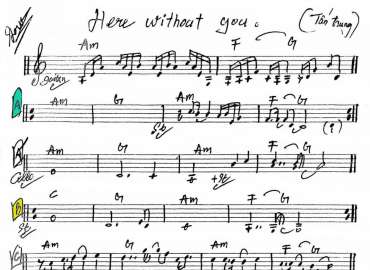 Here without you. (Tấn trung)
Am F G
A Am G Am F G
(?)
Am G Am F G
Cello
B C G Am F G
Am G Am F G